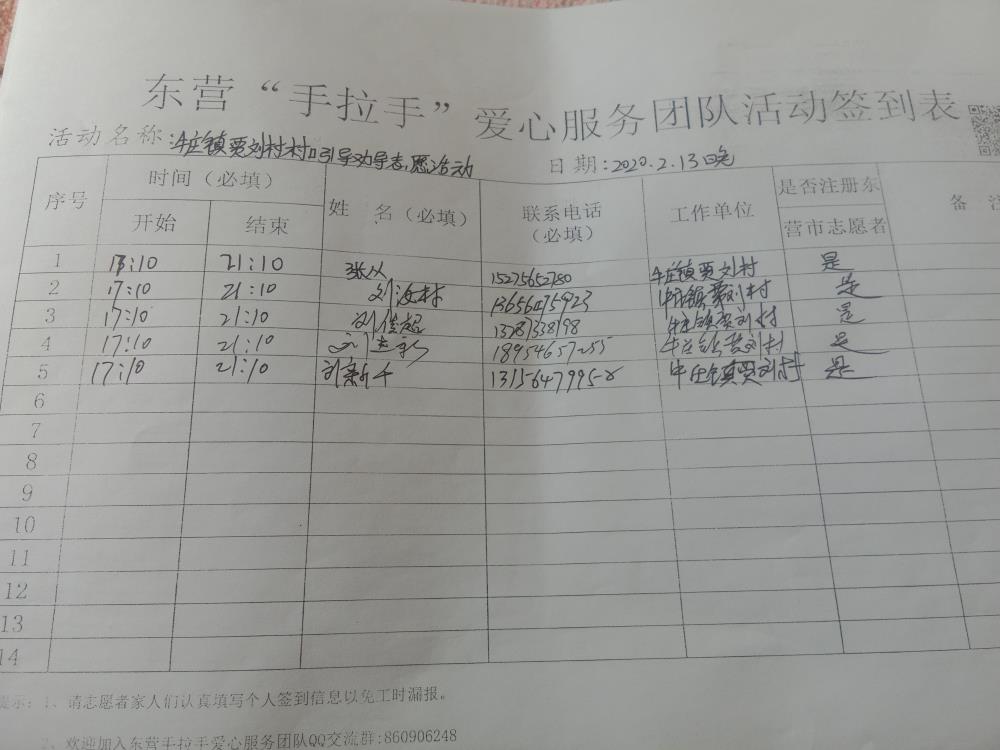 东营“手拉手”爱心服务团队活动签到表
活动名称:牛庄镇贾刘村村口引导劝导志愿活动 日期:2020.2.13晚
序号 时间（必填） 姓 名（必填） 联系电话（必填） 工作单位 是否注册东营市志愿者 备
开始 结束
1 17:10 21:10 15275652780 牛庄镇贾刘村 是
2 17:10 21:10 刘汝村 13656475923 牛庄镇贾刘村 是
3 17:10 21:10 刘佳超 牛庄镇贾刘村 是
4 17:10 21:10 18954657255 牛庄镇贾刘村 是
5 17:10 21:10 刘新千 牛庄镇贾刘村 是
6
7
8
9
10
11
12
13
14
示：1、请志愿者家人们认真填写个人签到信息以免工时漏报。
2、欢迎加入东营手拉手爱心服务团队QQ交流群:860906248